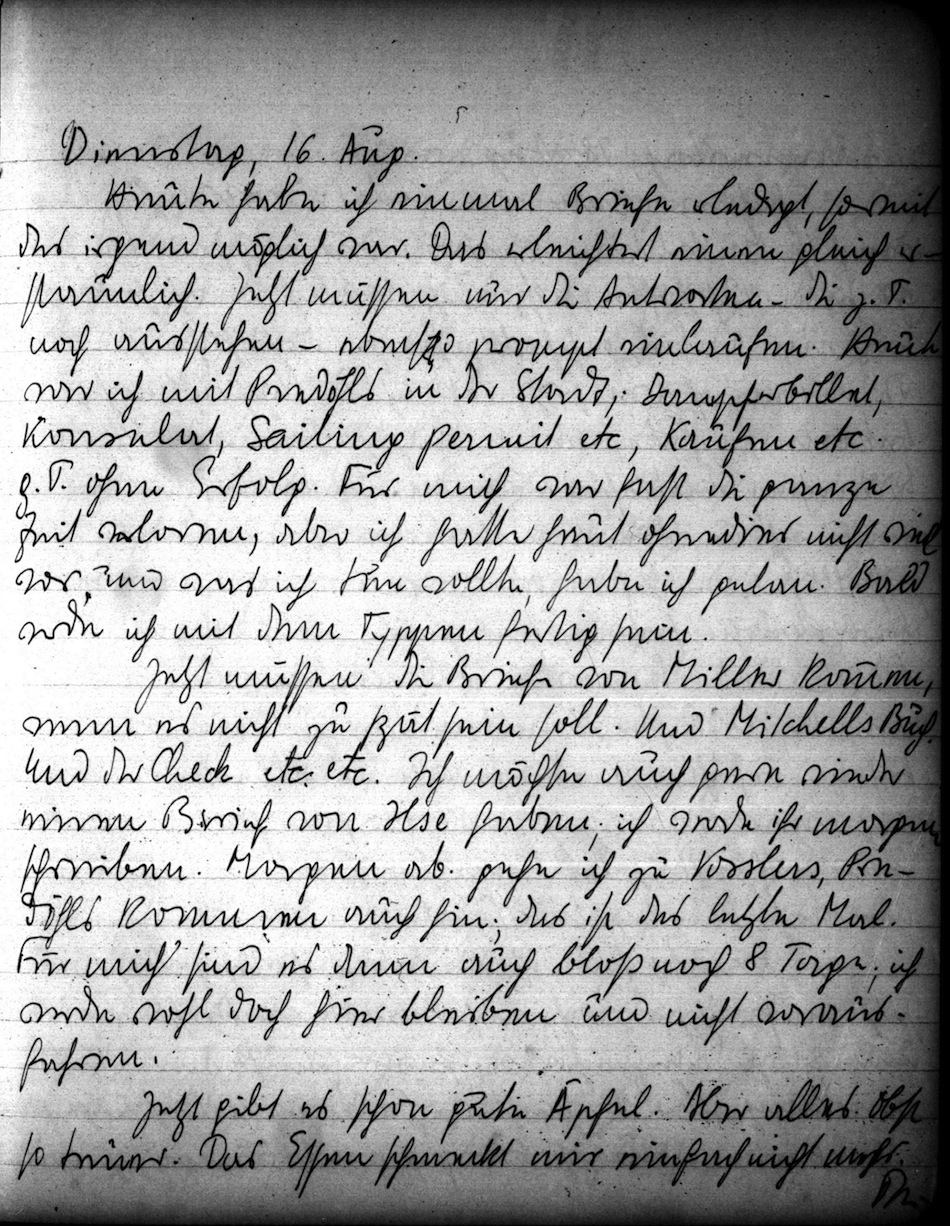 Dienstag, 16. Aug.
Heute habe ich einmal Briefe erledigt, soweit
das irgend möglich war. Das erleichtert einen gleich er-
staunlich. Jetzt müssen nur die Antworten – die z. T.
noch ausstehen – ebenso prompt einlaufen. Heute
war ich mit Predöhls in der Stadt; Dampferbillet,
Konsulat, Sailing permit etc, Kaufen etc.
z. T. ohne Erfolg. Für mich war fast die ganze
Zeit verloren, aber ich hatte heut ohnedies nicht viel
vor, und was ich tun wollte, habe ich getan. Bald
werde ich mit dem Typpen fertig sein.
Jetzt müssen die Briefe von Miller kommen,
wenn es nicht zu spät sein soll. Und Mitchells Buch.
Und der Check etc. etc. Ich möchte auch gern wieder
einen Brief von Ilse haben; ich werde ihr morgen
schreiben. Morgen ab. gehe ich zu Vosslers, Pre-
döhls kommen auch hin; das ist das letzte Mal.
Für mich sind es dann auch bloß noch 8 Tage; ich
werde wohl doch hier bleiben und nicht voraus-
fahren.
Jetzt gibt es schon gute Äpfel. Aber alles Obst
so teuer. Das Essen schmeckt mir einfach nicht mehr.